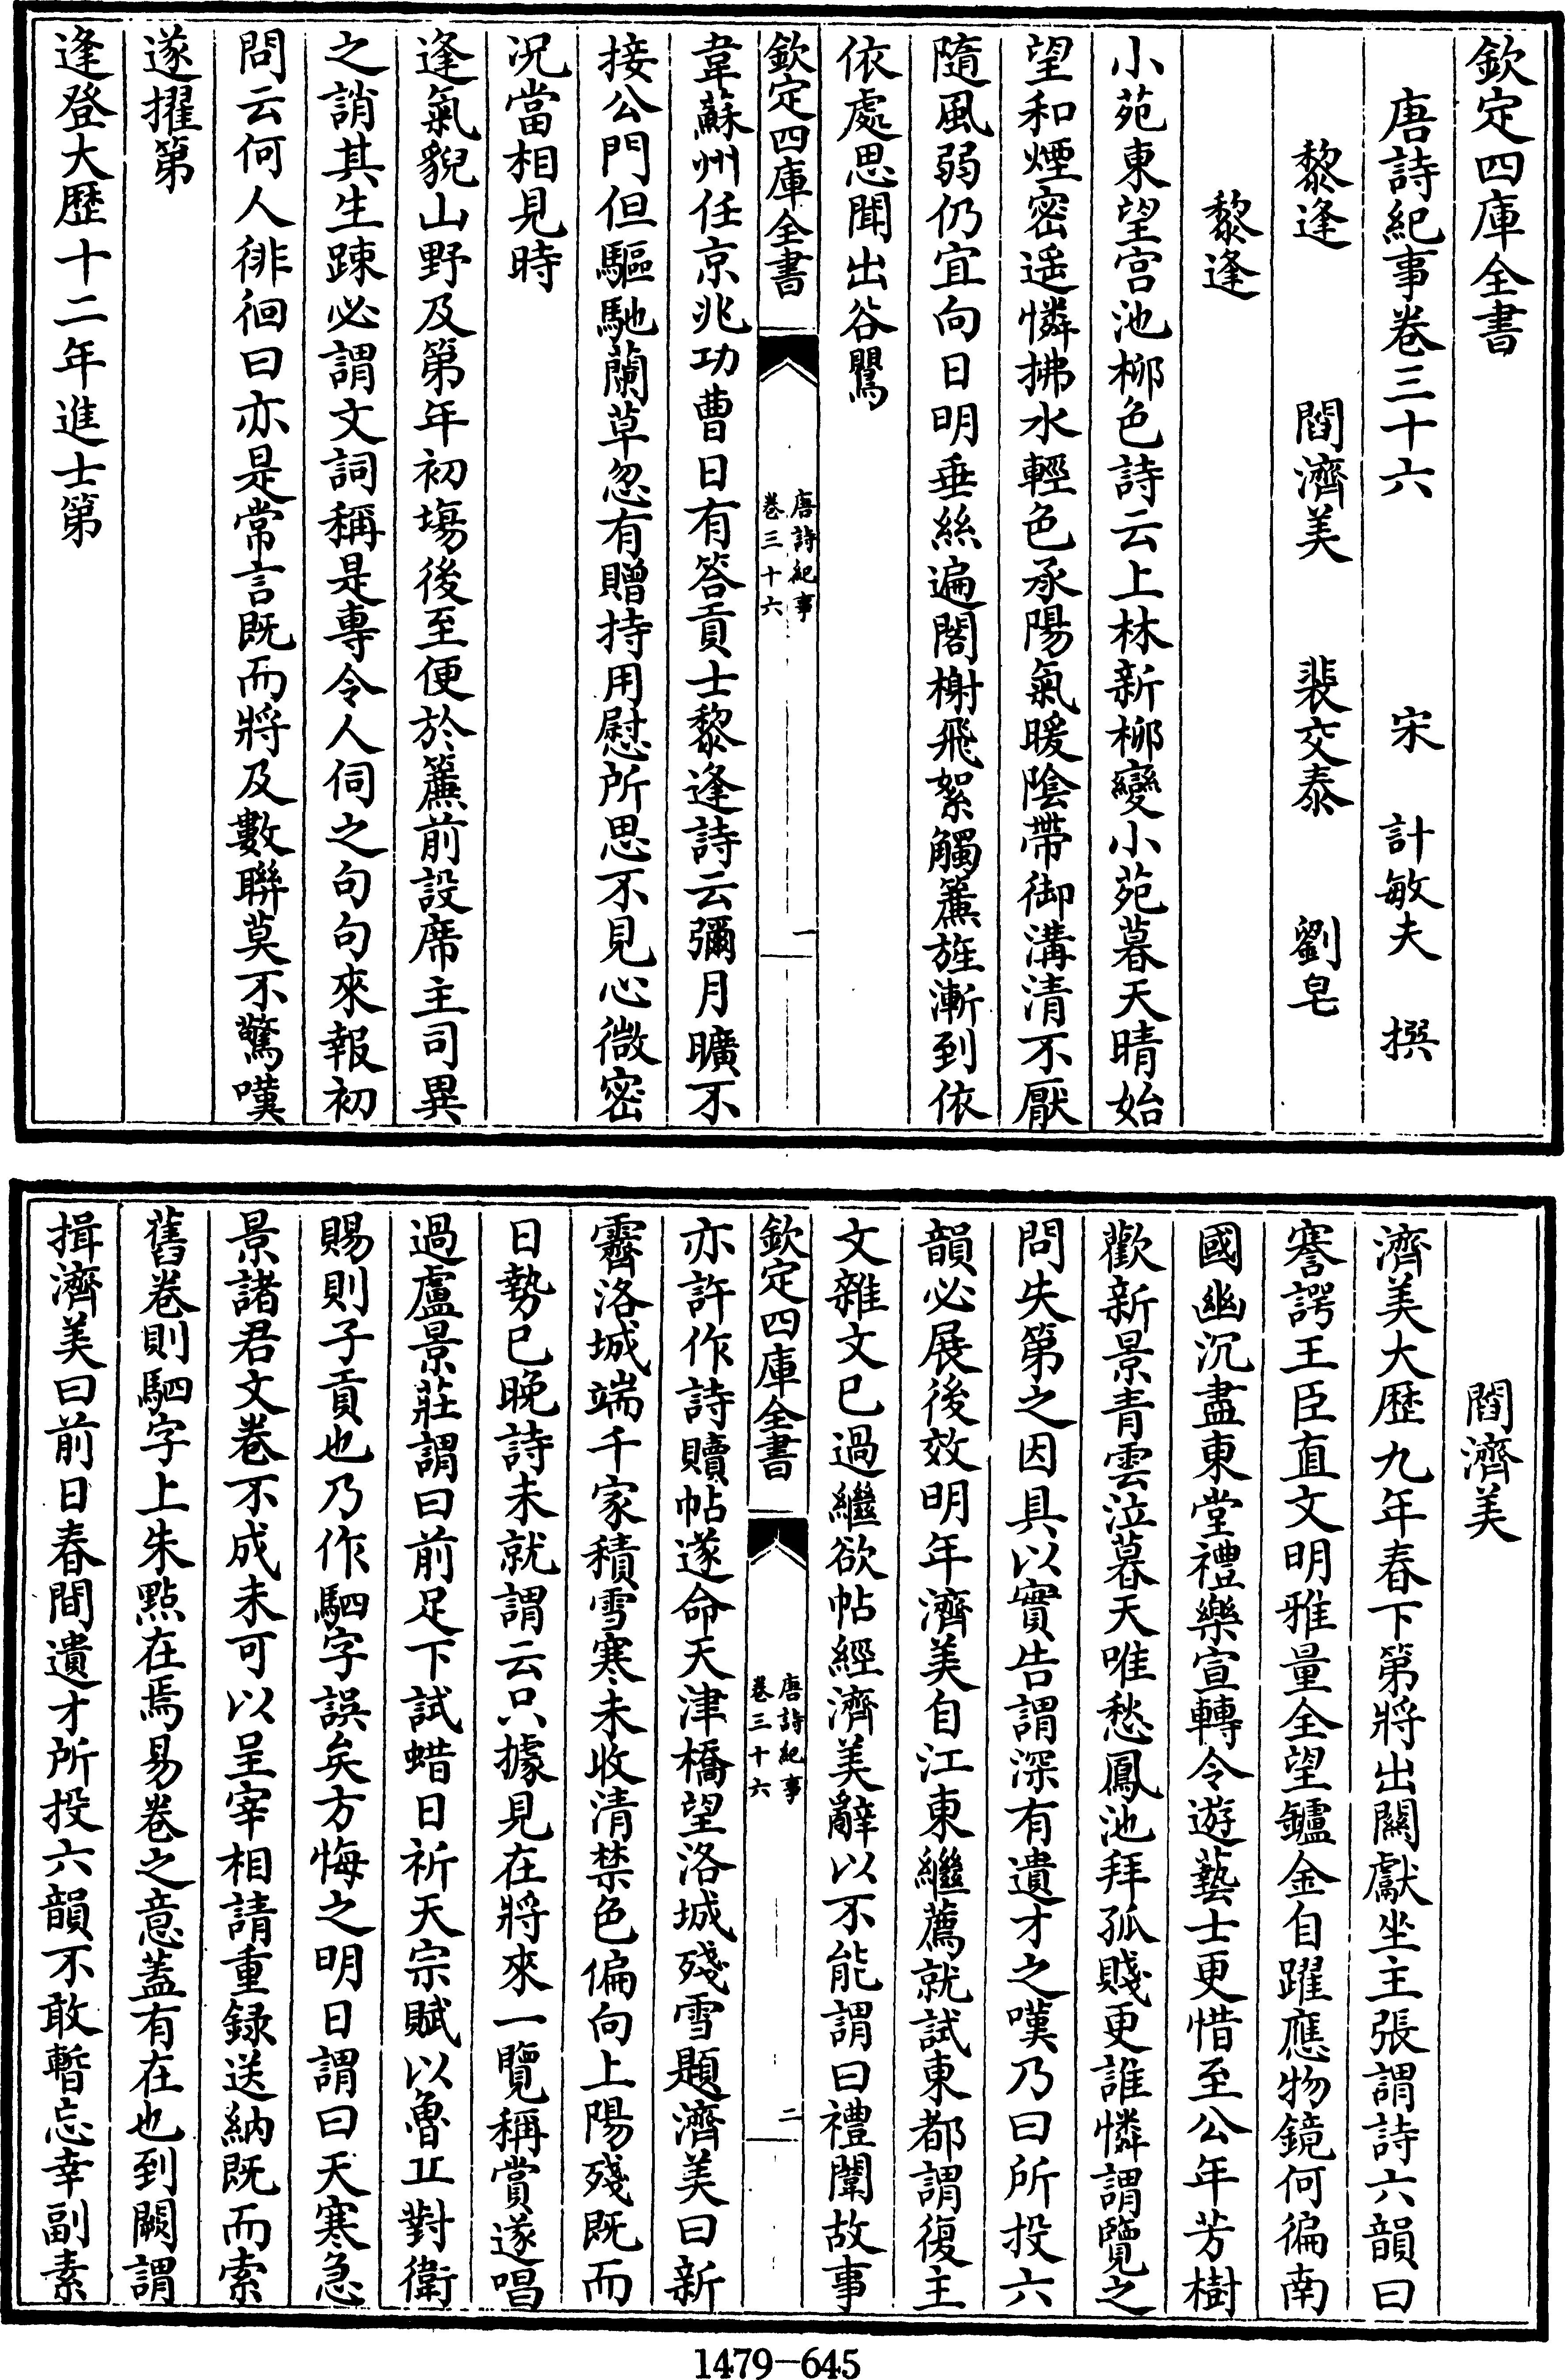 欽定四庫全書
唐詩紀事卷三十六 宋 計敏夫 撰
黎逢 閻濟美 裴交泰 劉皂
黎逢
小苑東望宫池柳色詩云上林新柳變小苑暮天晴始
望和煙密遥憐拂水輕色承陽氣暖陰帶御溝清不厭
隨風弱仍宜向日明垂絲遍閣榭飛絮觸簾旌漸到依
依處思聞出谷鸎
欽定四庫全書
唐詩紀事
卷三十六
一
韋蘇州任京兆功曹日有答貢士黎逢詩云彌月曠不
接公門但驅馳蘭草忽有贈持用慰所思不見心微密
况當相見時
逢氣貌山野及第年初塲後至便於簾前設席主司異
之誚其生踈必謂文詞稱是專令人伺之句句來報初
問云何人徘徊曰亦是常言既而將及數聯莫不驚嘆
遂擢第
逢登大歴十二年進士第
閻濟美
濟美大歴九年春下第將出關獻坐主張謂詩六韻曰
謇諤王臣直文明雅量全望鑪金自躍應物鏡何徧南
國幽沉盡東堂禮樂宣轉令遊藝士更惜至公年芳樹
歡新景青雲泣暮天唯愁鳳池拜孤賤更誰憐謂覽之
問失第之因具以實告謂深有遺才之嘆乃曰所投六
韻必展後效明年濟美自江東繼薦就試東都謂復主
文雜文已過繼欲帖經濟美辭以不能謂曰禮闈故事
欽定四庫全書
唐詩紀事
卷三十六
二
亦許作詩贖帖遂命天津橋望洛城殘雪題濟美曰新
霽洛城端千家積雪寒未收清禁色偏向上陽殘既而
日勢已晚詩未就謂云只據見在將來一覽稱賞遂唱
過盧景莊謂曰前足下試蜡日祈天宗賦以魯丘對衛
賜則子貢也乃作駟字誤矣方悔之明日謂曰天寒急
景諸君文卷不成未可以呈宰相請重録送納既而索
舊卷則駟字上朱點在焉易卷之意蓋有在也到闕謂
揖濟美曰前日春間遺才所投六韻不敢暫忘幸副素
1479-645